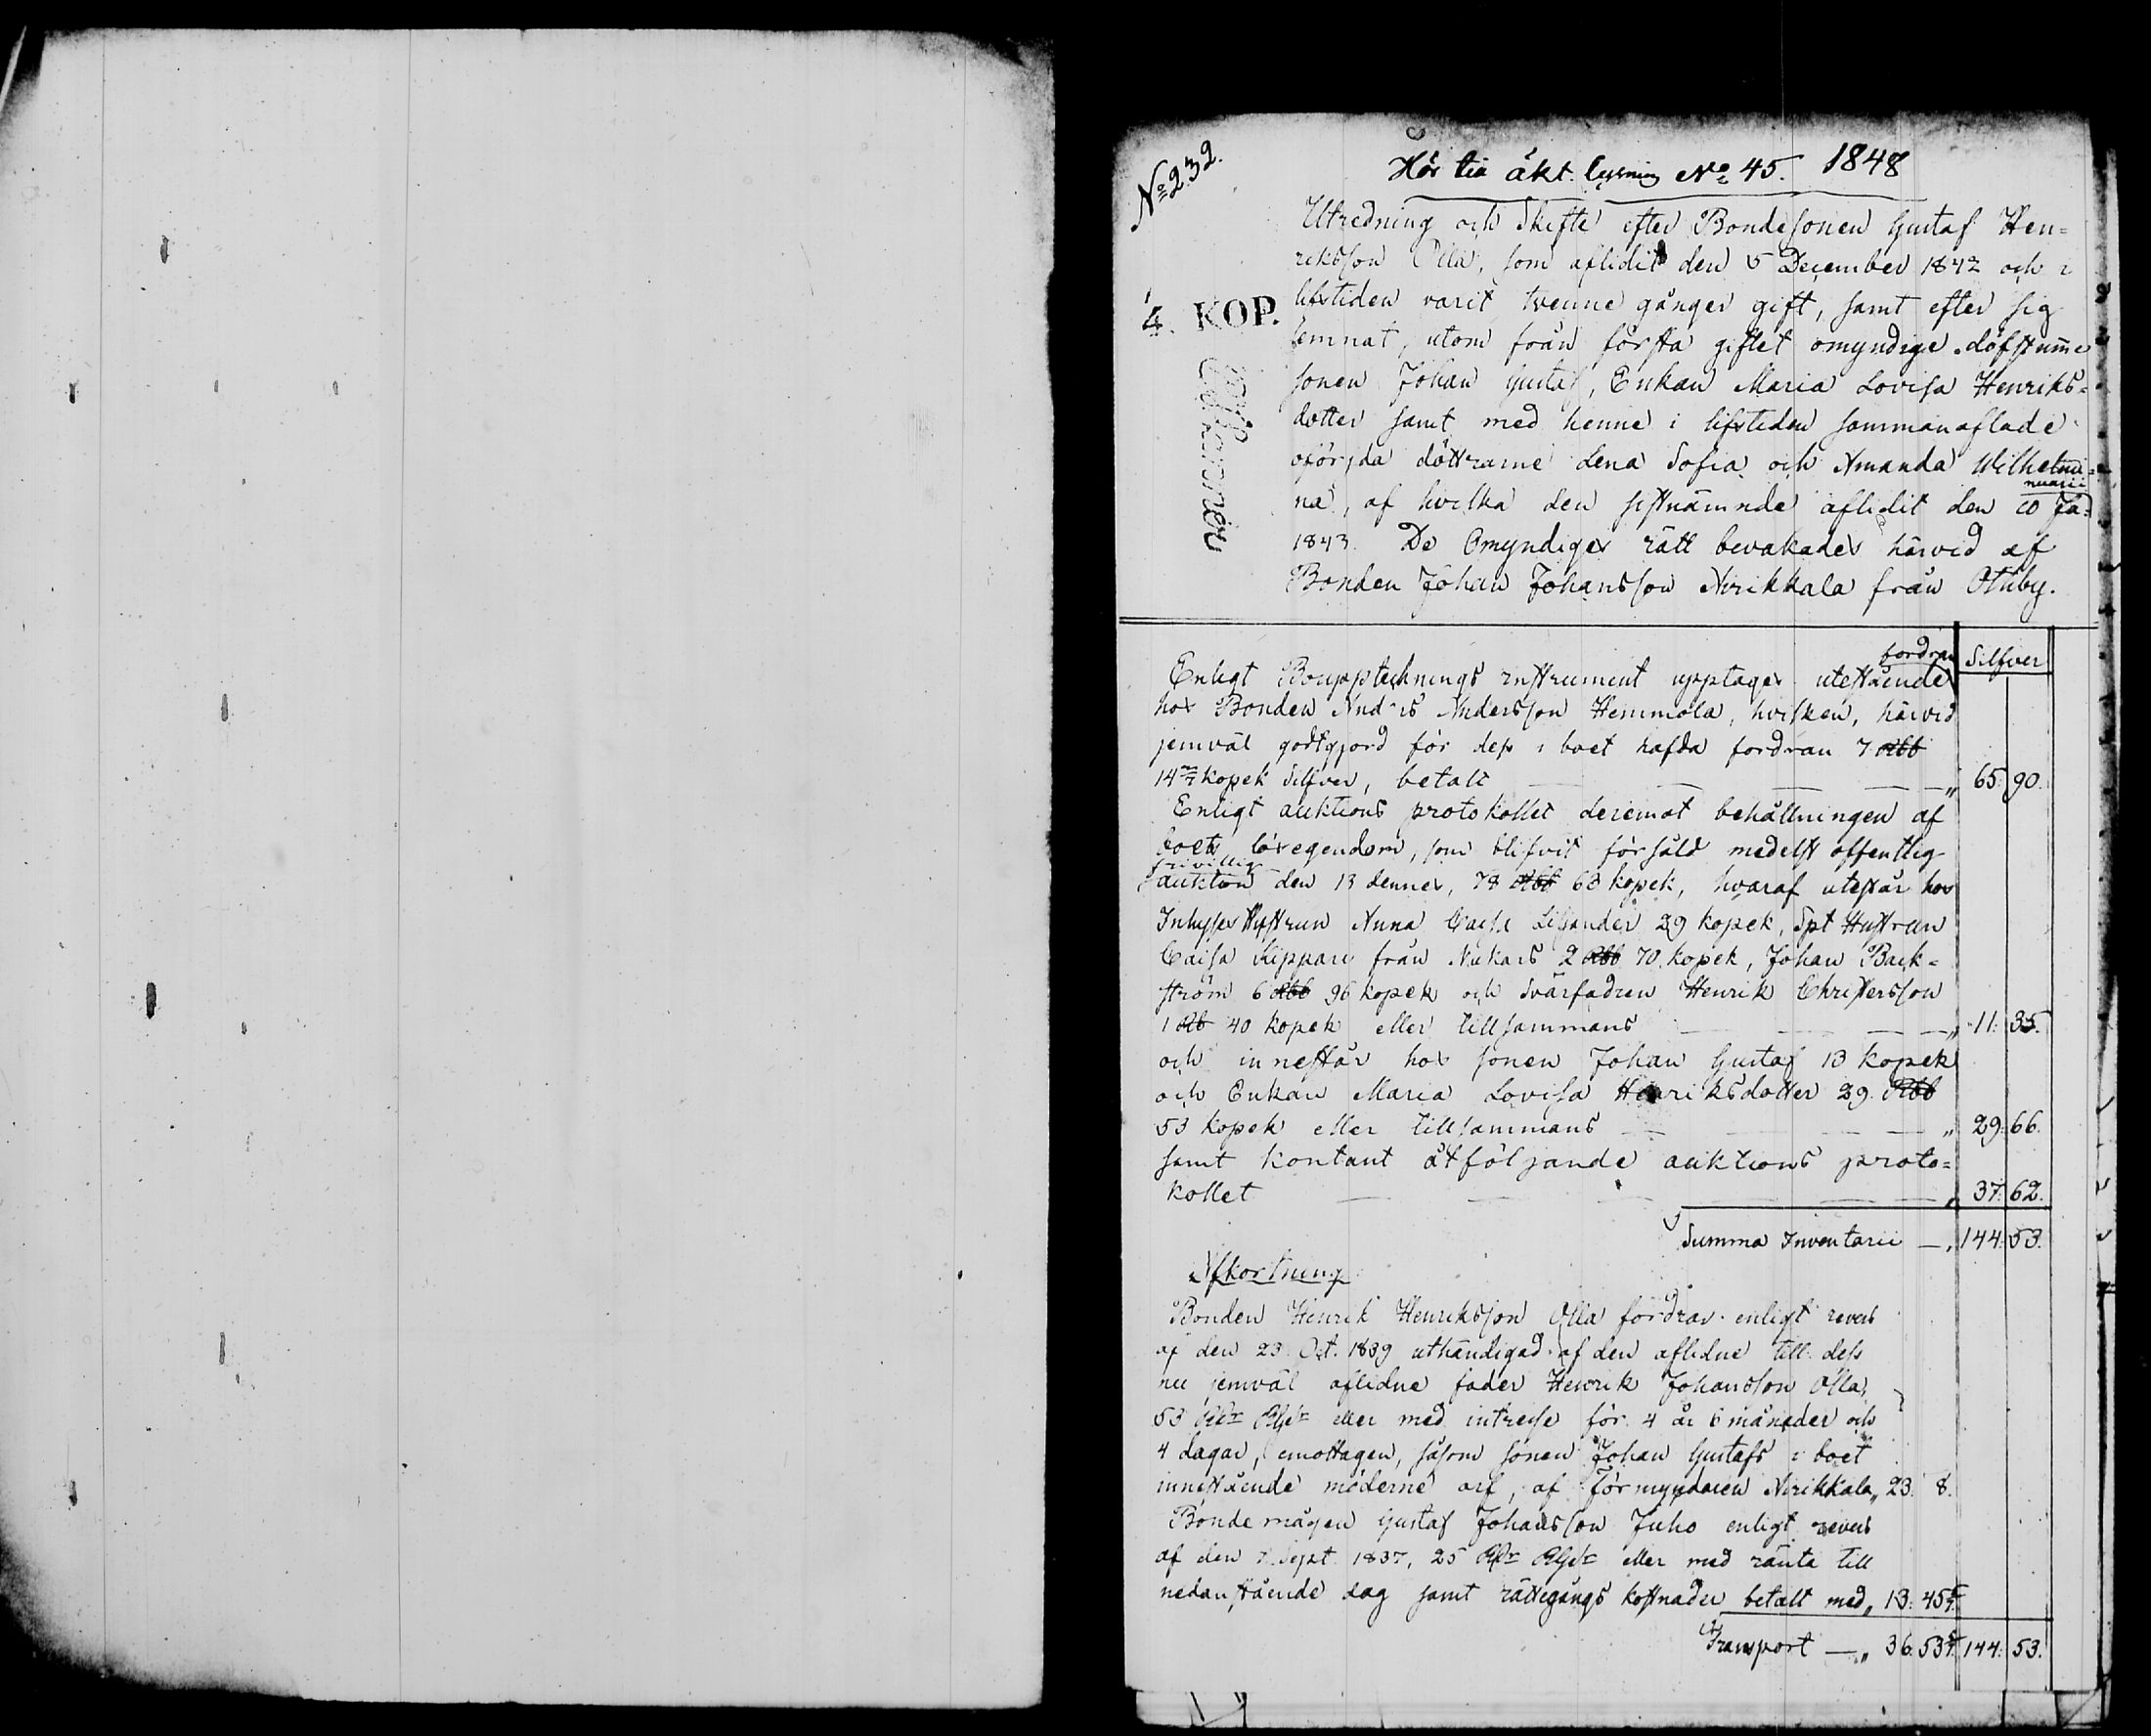 No 232.
Hör till äkt. lysning No 45. 1848
Utredning och Skifte efter Bondesonen Gustaf Hen=
riksson Olla, som aflidit den 5 December 1842 och i
lifstiden varit tvenne gånger gift, samt efter sig
4. KOP.
lemnat, utom från första giftet omyndige döfstumme
sonen Johan Gustaf, Enkan Maria Lovisa Henriks=
dotter samt med henne i lifstiden sammanaflade
oförsjda döttrarne Lena Sofia och Amanda Wilhelmi=
na, af hvilka den sistnämnde aflidit den 10 Ja=
nuarii
1843. De Omyndiges rätt bevakades härvid af
Bonden Johan Johansson Nirikkala från Otnby.
Silfver
Enligt Boupptecknings instrument upptages utestående
fordran
hos Bonden Anders Andersson Hemmola, hvilken, härvid
jemväl godtgjord för dess i boet hafda fordran 7 Rbl
14 2/7 kopek Silfver, betalt — — — — " 65. 90.
Enligt auktions protokollet deremot behållningen af
boets lösegendom, som blifvit försåld medelst offentlig
frivillig
auktion den 13 dennes, 78 Rbl 63 kopek, hvaraf utestår hos
Inhyses Hustrun Anna Caisa Lisander 29 kopek, Spt Hustrun
Caisa Kippari från Nukars 2 Rbl 70 kopek, Johan Back=
ström 6 Rbl 96 kopek och Svärfadren Henrik Christersson
1 Rb 40 kopek eller tillsammans — — — — " 11. 35.
och innestår hos sonen Johan Gustaf 13 kopek
och Enkan Maria Lovisa Henriksdotter 29 Rbl
53 kopek eller tillsammans — — — — " 29. 66.
samt kontant åtföljande auktions proto=
kollet — — — — — " 37. 62.
Summa Inventarii — " 144. 53.
Afkortning
Bonden Henrik Henriksson Olla fordrar enligt revers
af den 23 Oct. 1839 uthändigad af den aflidne till dess
nu jemväl aflidne fader Henrik Johansson Olla,
53 Rdr Rgs eller med intresse för 4 år 6 månader och
4 dagar, emottagen, såsom sonen Johan Gustafs i boet
innestående möderne arf, af Förmyndaren Nirikkala " 23. 8.
Bondemågen Gustaf Johansson Juho enligt revers
af den 7 Sept. 1837, 25 Rdr Rgs eller med ränta till
nedanstående dag samt rättegångs kostnader betalt med " 13. 45 5/7.
Transport — " 36. 53 5/7. 144. 53.